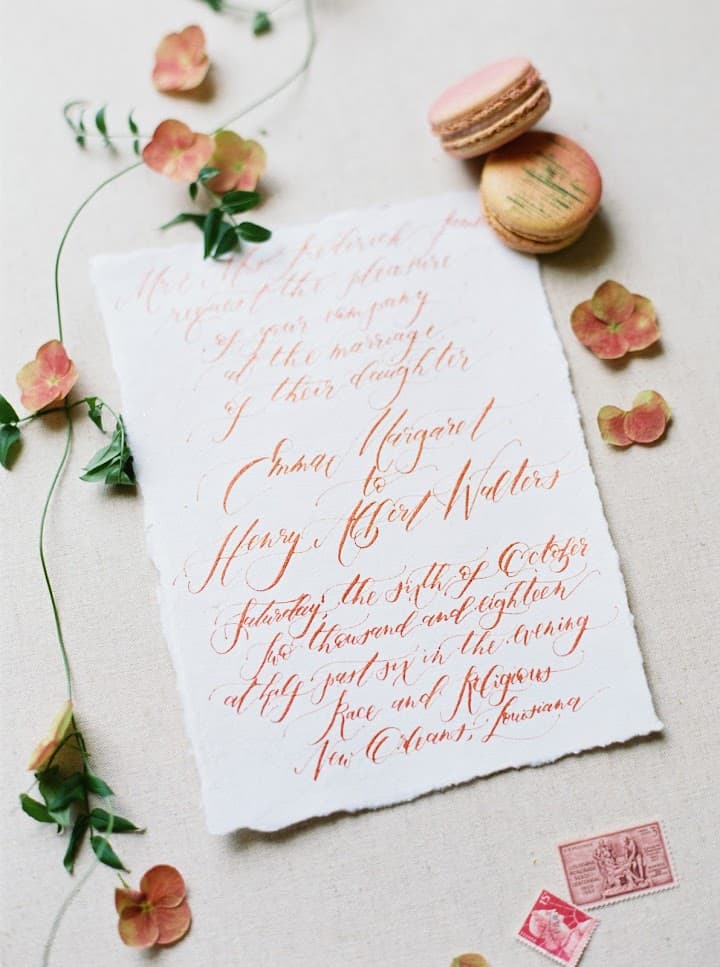 Mr & Mrs Frederick
request the pleasure
of your company
at the marriage
of their daughter
Emma Margaret
to
Henry Albert Walters
Saturday, the sixth of October
two thousand and eighteen
at half past six in the evening
Race and Religious
New Orleans, Louisiana